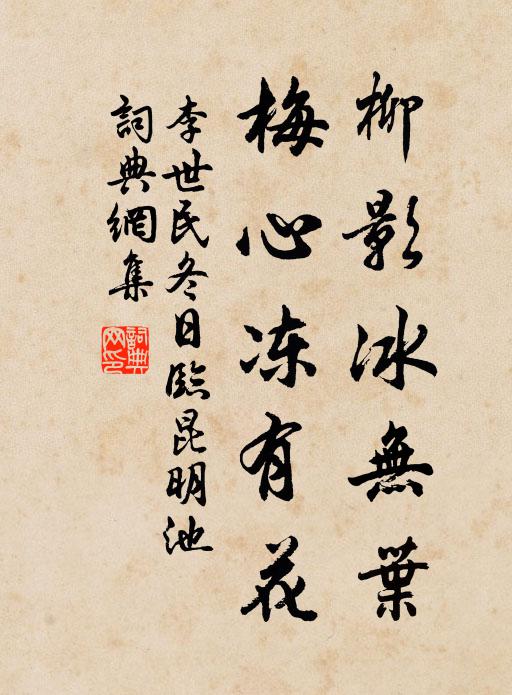 柳影冰無葉
梅心冻有花
李世民冬日臨昆明池
詞典網集
詞典網印